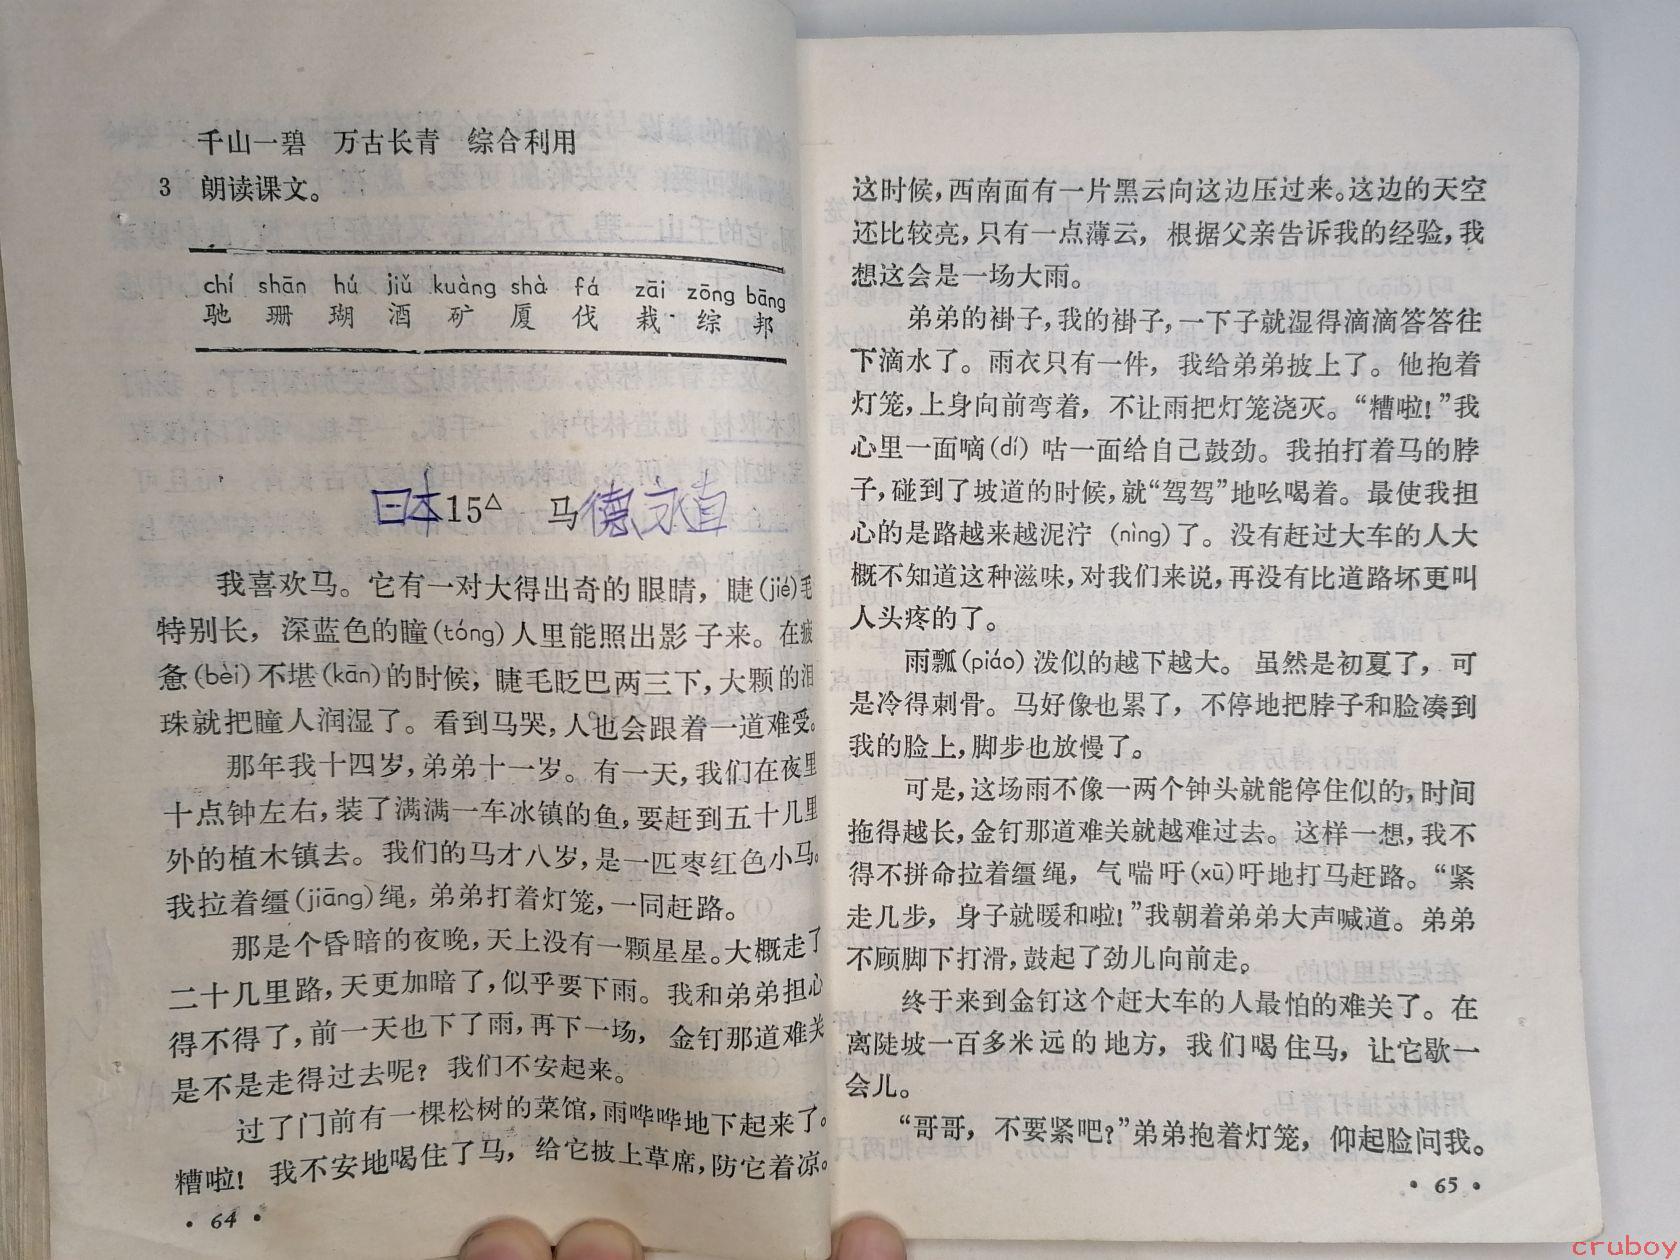 千山一碧　万古长青　综合利用
3　朗读课文。
chí shān hú jiǔ kuàng shà fá zāi zōng bāng
驰 珊 瑚 酒 矿 厦 伐 栽 综 邦
日本15△　马德永直
我喜欢马。它有一对大得出奇的眼睛，睫(jié)毛
特别长，深蓝色的瞳(tóng)人里能照出影子来。在疲
惫(bèi)不堪(kān)的时候，睫毛眨巴两三下，大颗的泪
珠就把瞳人润湿了。看到马哭，人也会跟着一道难受。
那年我十四岁，弟弟十一岁。有一天，我们在夜里
十点钟左右，装了满满一车冰镇的鱼，要赶到五十几里
外的植木镇去。我们的马才八岁，是一匹枣红色小马。
我拉着缰(jiāng)绳，弟弟打着灯笼，一同赶路。
那是个昏暗的夜晚，天上没有一颗星星。大概走了
二十几里路，天更加暗了，似乎要下雨。我和弟弟担心
得不得了，前一天也下了雨，再下一场，金钉那道难关
是不是走得过去呢？我们不安起来。
过了门前有一棵松树的菜馆，雨哗哗地下起来了。
糟啦！我不安地喝住了马，给它披上草席，防它着凉。
• 64 •
这时候，西南面有一片黑云向这边压过来。这边的天空
还比较亮，只有一点薄云，根据父亲告诉我的经验，我
想这会是一场大雨。
弟弟的褂子，我的褂子，一下子就湿得滴滴答答往
下滴水了。雨衣只有一件，我给弟弟披上了。他抱着
灯笼，上身向前弯着，不让雨把灯笼浇灭。“糟啦！”我
心里一面嘀(dí)咕一面给自己鼓劲。我拍打着马的脖
子，碰到了坡道的时候，就“驾驾”地吆喝着。最使我担
心的是路越来越泥泞(nìng)了。没有赶过大车的人大
概不知道这种滋味，对我们来说，再没有比道路坏更叫
人头疼的了。
雨瓢(piáo)泼似的越下越大。虽然是初夏了，可
是冷得刺骨。马好像也累了，不停地把脖子和脸凑到
我的脸上，脚步也放慢了。
可是，这场雨不像一两个钟头就能停住似的，时间
拖得越长，金钉那道难关就越难过去。这样一想，我不
得不拼命拉着缰绳，气喘吁(xū)吁地打马赶路。“紧
走几步，身子就暖和啦！”我朝着弟弟大声喊道。弟弟
不顾脚下打滑，鼓起了劲儿向前走。
终于来到金钉这个赶大车的人最怕的难关了。在
离陡坡一百多米远的地方，我们喝住马，让它歇一
会儿。
“哥哥，不要紧吧？”弟弟抱着灯笼，仰起脸问我。
• 65 •
cruboy